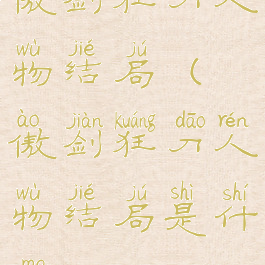 傲剑狂刀人
wù jié jú
物结局（
ào jiàn kuáng dāo rén
傲剑狂刀人
wù jié jú shì shí
物结局是什
me